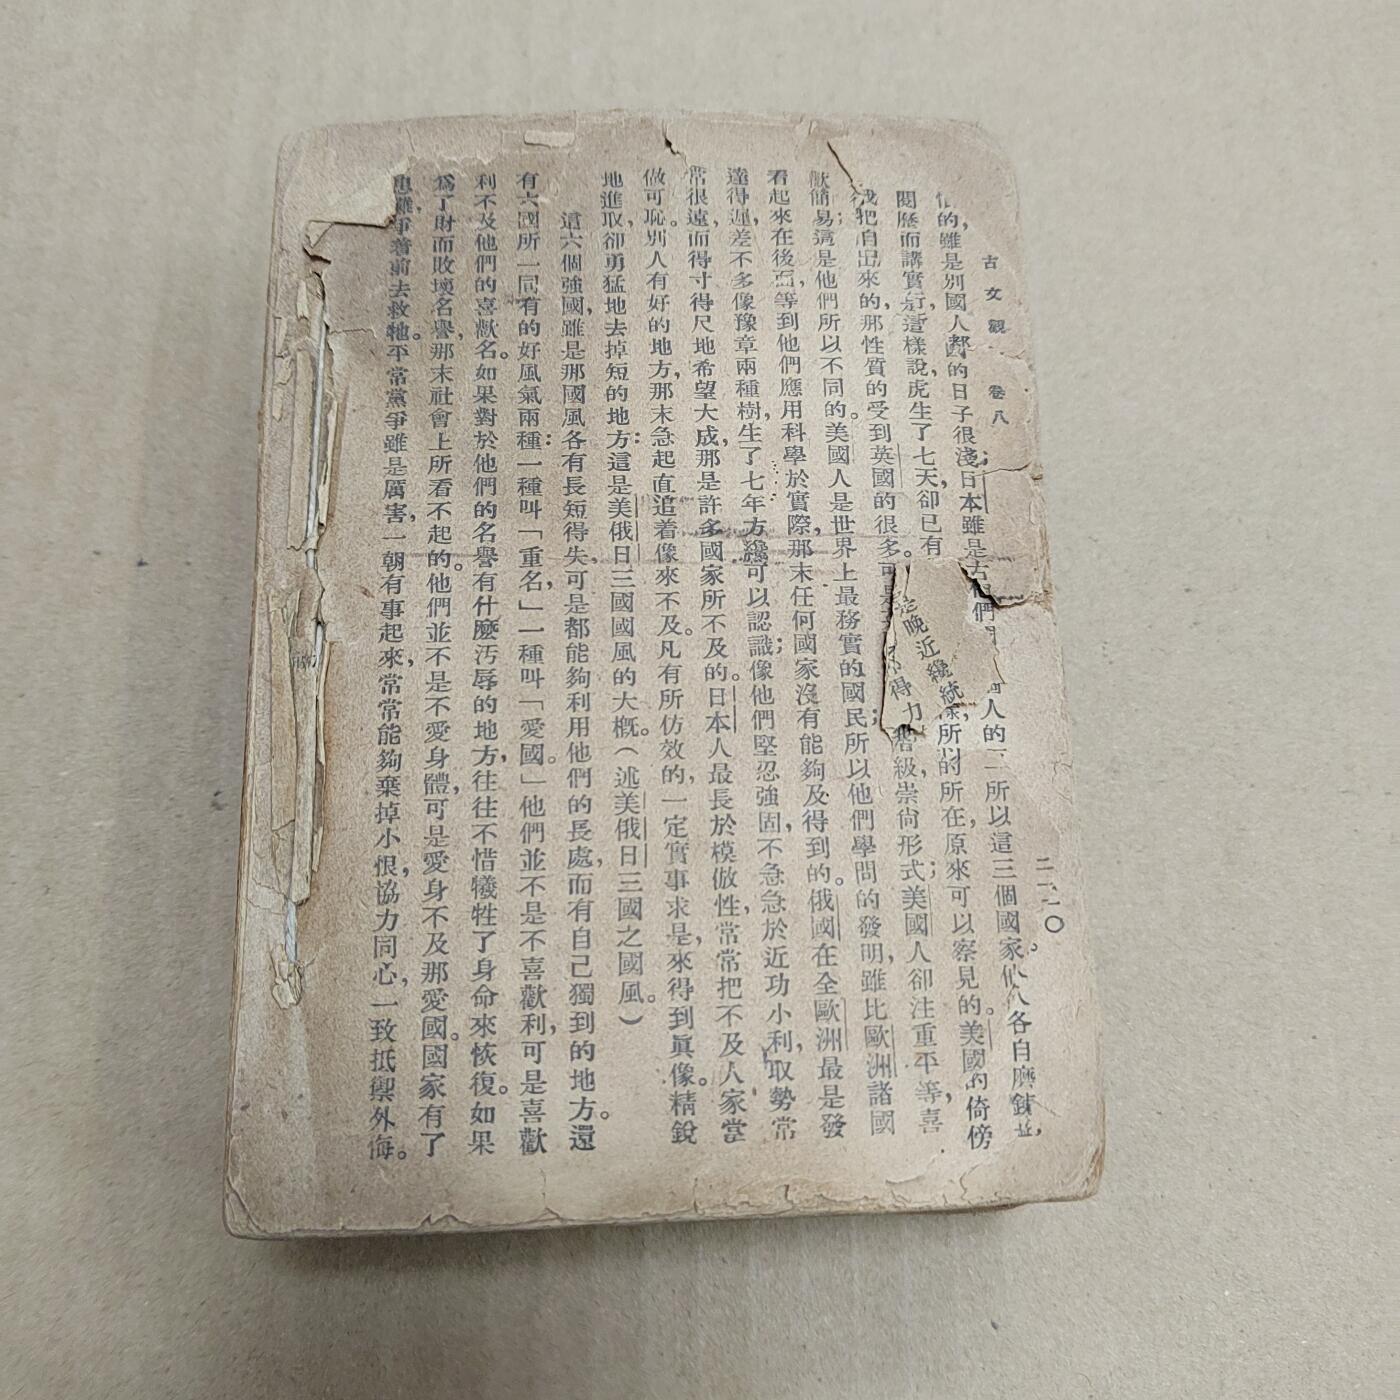 古文觀 卷八
二一〇
人的 所以這三個國家 各自磨鍊
的雖是別國人都的日子很淺日本雖是古
閱歷而講實行,這樣說,虎生了七天,卻已有
所以的所在,原來可以察見的。美國的倚傍
晚近纔
得力
我把自出來的,那性質的受到英國的很多。可是
階級,崇尙形式;美國人卻注重平等,喜
歡簡易;這是他們所以不同的。美國人是世界上最務實的國民;所以他們學問的發明,雖比歐洲諸國
看起來在後面,等到他們應用科學於實際,那末任何國家沒有能夠及得到的。俄國在全歐洲最是發
達得遲,差不多像豫章兩種樹,生了七年,方纔可以認識;像他們堅忍強固,不急急於近功小利,取勢常
常很遠,而得寸得尺地希望大成,那是許多國家所不及的。日本人最長於模倣性,常常把不及人家當
做可恥。別人有好的地方,那末急起直追着,像來不及。凡有所仿效的,一定實事求是,來得到眞像。精銳
地進取,卻勇猛地去掉短的地方:這是美俄日三國國風的大槪。(述美俄日三國之國風。)
這六個強國,雖是那國風各有長短得失,可是都能夠利用他們的長處,而有自己獨到的地方。還
有六國所一同有的好風氣兩種:一種叫「重名,」一種叫「愛國。」他們並不是不喜歡利,可是喜歡
利不及他們的喜歡名。如果對於他們的名譽有什麼汚辱的地方,往往不惜犧牲了身命來恢復。如果
爲了財而敗壞名譽,那末社會上所看不起的。他們並不是不愛身體,可是愛身不及那愛國。國家有了
患難,爭着前去救牠。平常黨爭雖是厲害,一朝有事起來,常常能夠棄掉小恨,協力同心,一致抵禦外侮。